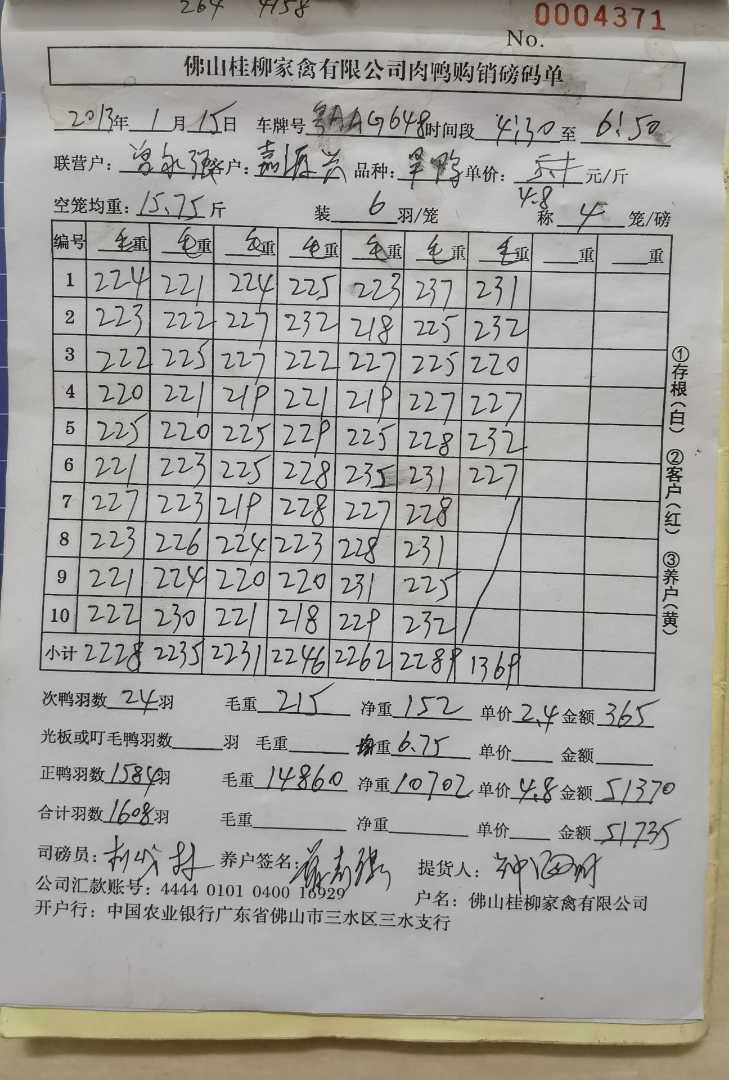 264 4158
No. 0004371
佛山桂柳家禽有限公司肉鸭购销磅码单
2013年 1月 15日 车牌号 粤AAG648 时间段 4:30 至 6:50
联营户: 客户: 嘉 品种: 单价: 元/斤
4.8
空笼均重: 15.75 斤 装 6 羽/笼 称 4 笼/磅
编号 毛重 毛重 毛重 毛重 毛重 毛重 毛重 重 重
1 224 221 224 225 223 237 231
2 223 222 227 232 218 225 232
3 222 225 227 222 227 225 220
4 220 221 219 221 219 227 227
5 225 220 225 229 225 228 232
6 221 223 225 228 235 231 227
7 227 223 219 228 227 228
8 223 226 224 223 228 231
9 221 224 220 220 231 225
10 222 230 221 218 229 232
小计 2228 2235 2231 2246 2262 2289 1369
次鸭羽数 24 羽 毛重 215 净重 152 单价 2.4 金额 365
光板或叮毛鸭羽数 羽 毛重 均重 6.75 单价 金额
正鸭羽数 1584 羽 毛重 14860 净重 10702 单价 4.8 金额 51370
合计羽数 1608 羽 毛重 净重 单价 金额 51735
司磅员: 养户签名: 提货人:
公司汇款账号: 4444 0101 0400 16929 户名: 佛山桂柳家禽有限公司
开户行: 中国农业银行广东省佛山市三水区三水支行
①存根(白) ②客户(红) ③养户(黄)